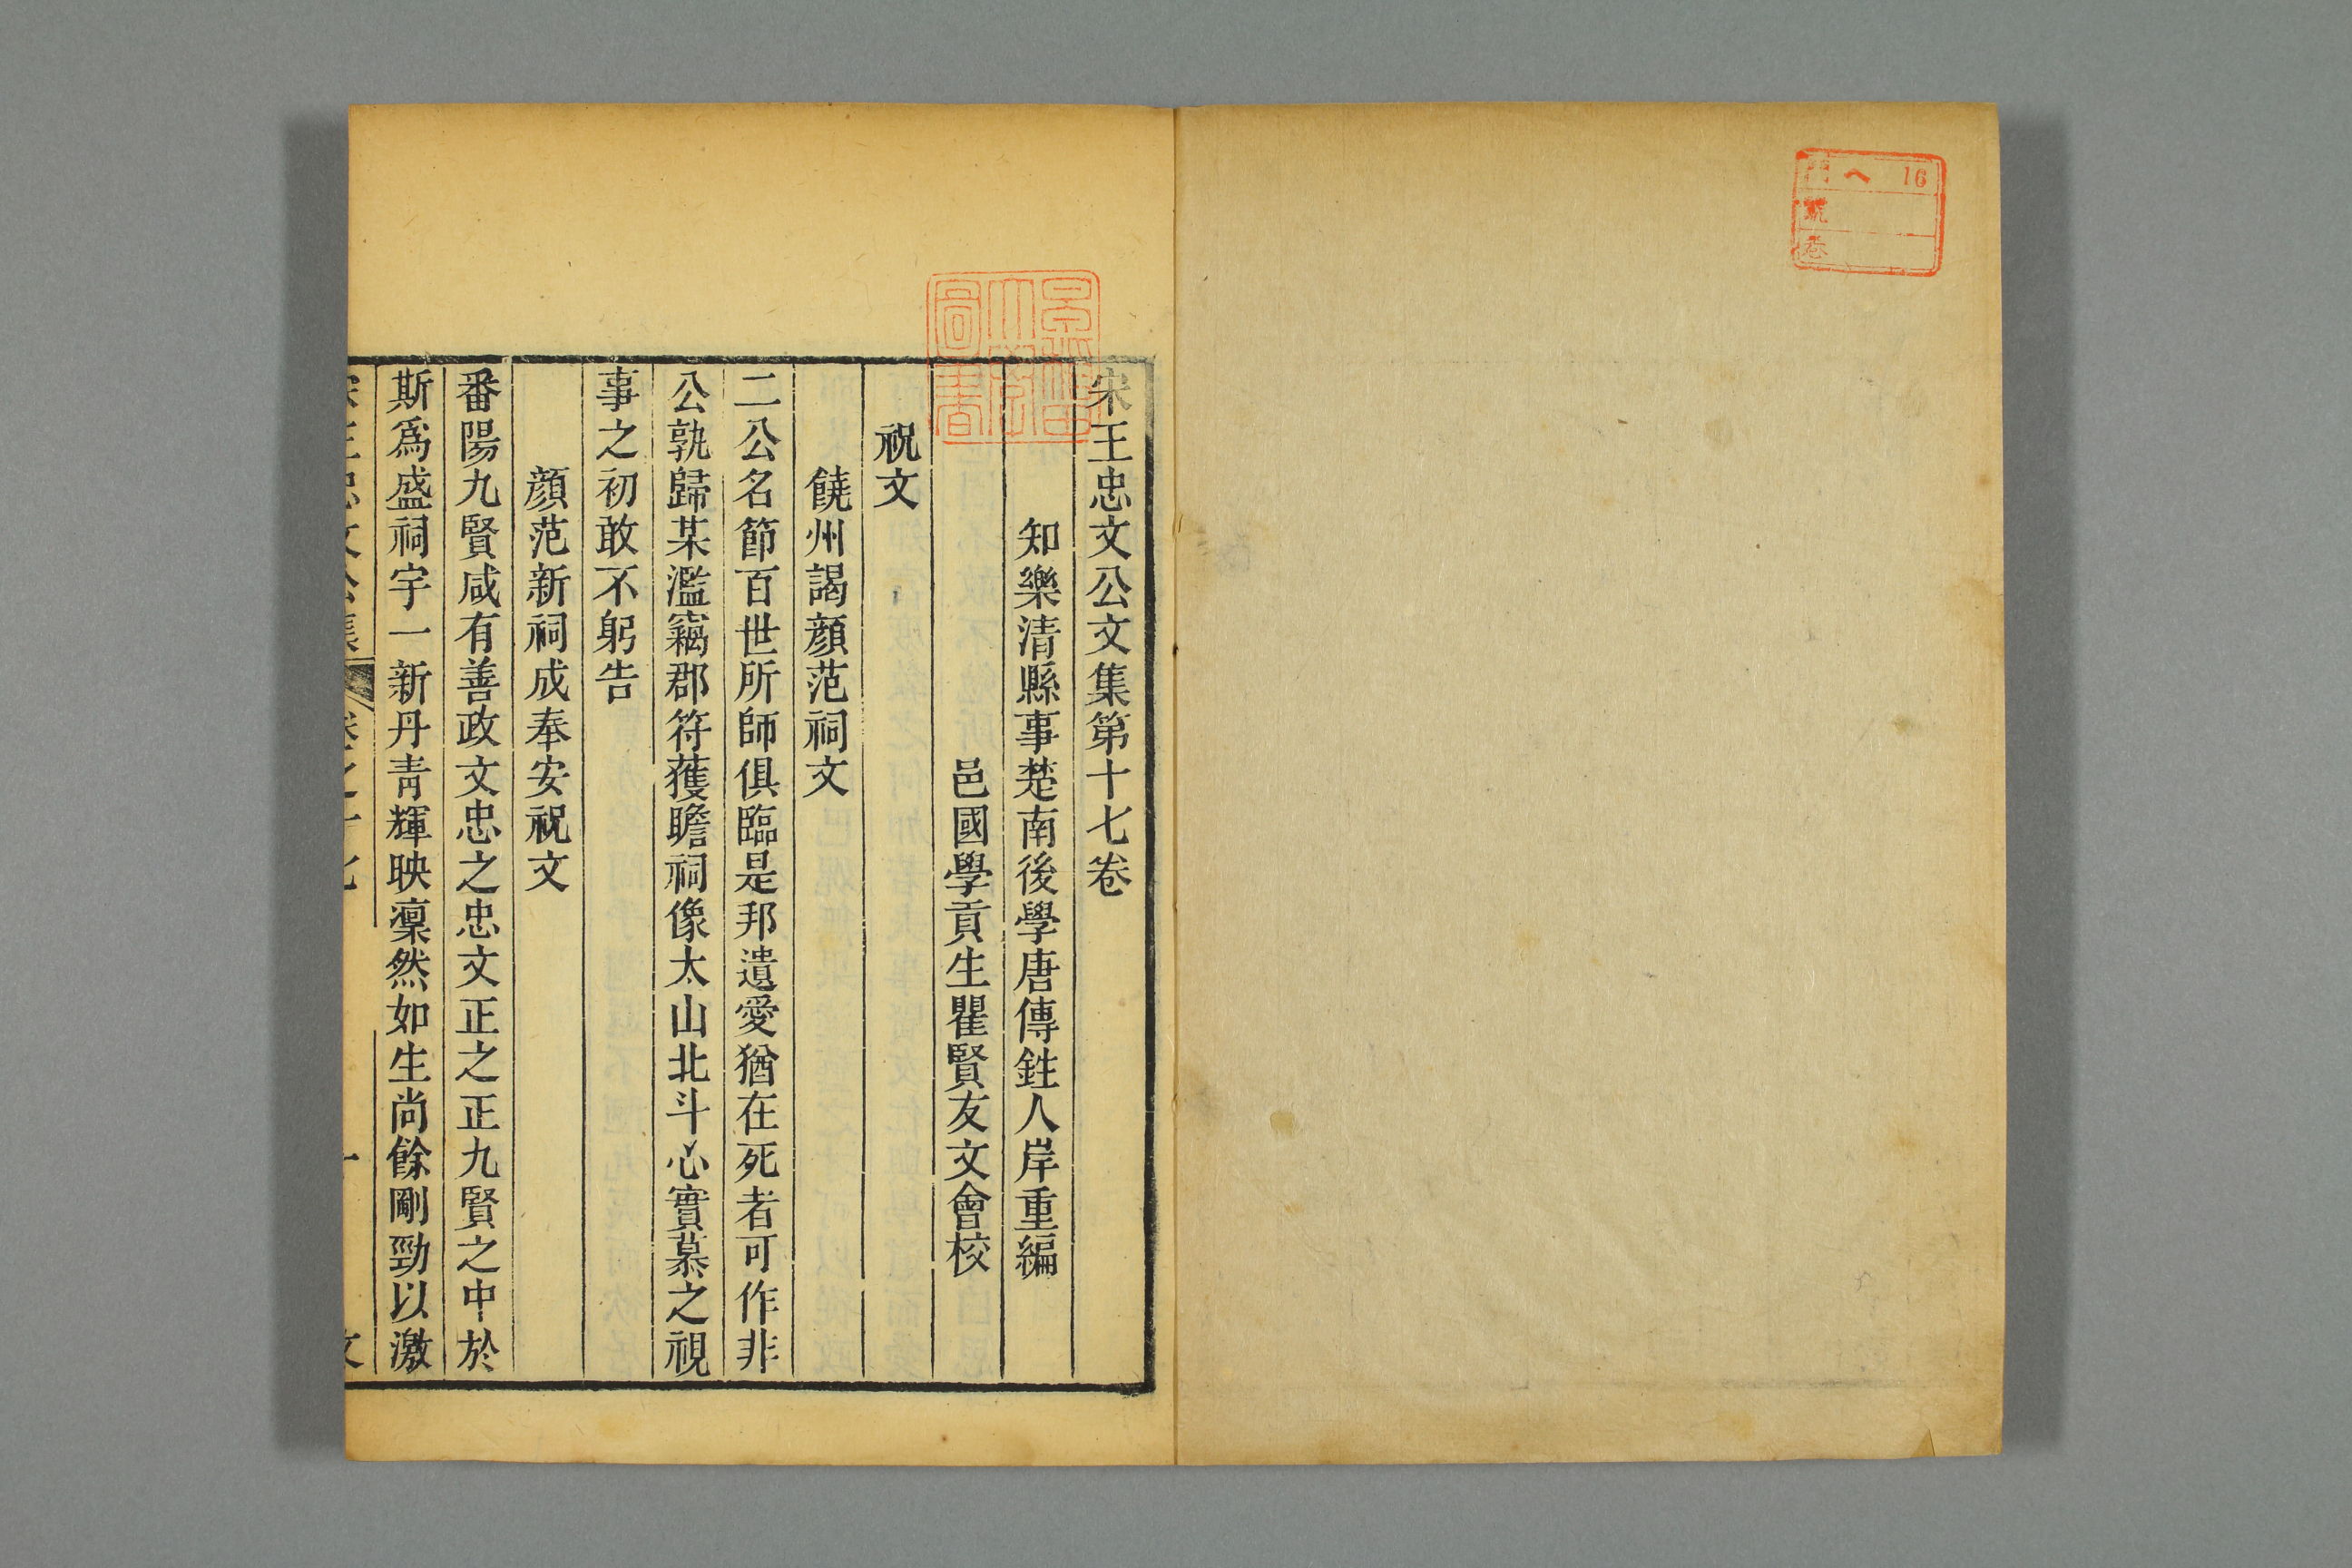 門 へ 16
號
卷
宋王忠文公文集第十七卷
知樂清縣事楚南後學唐傳鉎人岸重編
邑國學貢生瞿賢友文會校
祝文
饒州謁顏范祠文
二公名節百世所師俱臨是邦遺愛猶在死者可作非
公孰歸某濫竊郡符獲瞻祠像太山北斗心實慕之視
事之初敢不躬告
顏范新祠成奉安祝文
番陽九賢咸有善政文忠之忠文正之正九賢之中於
斯爲盛祠宇一新丹靑輝映凜然如生尚餘剛勁以激